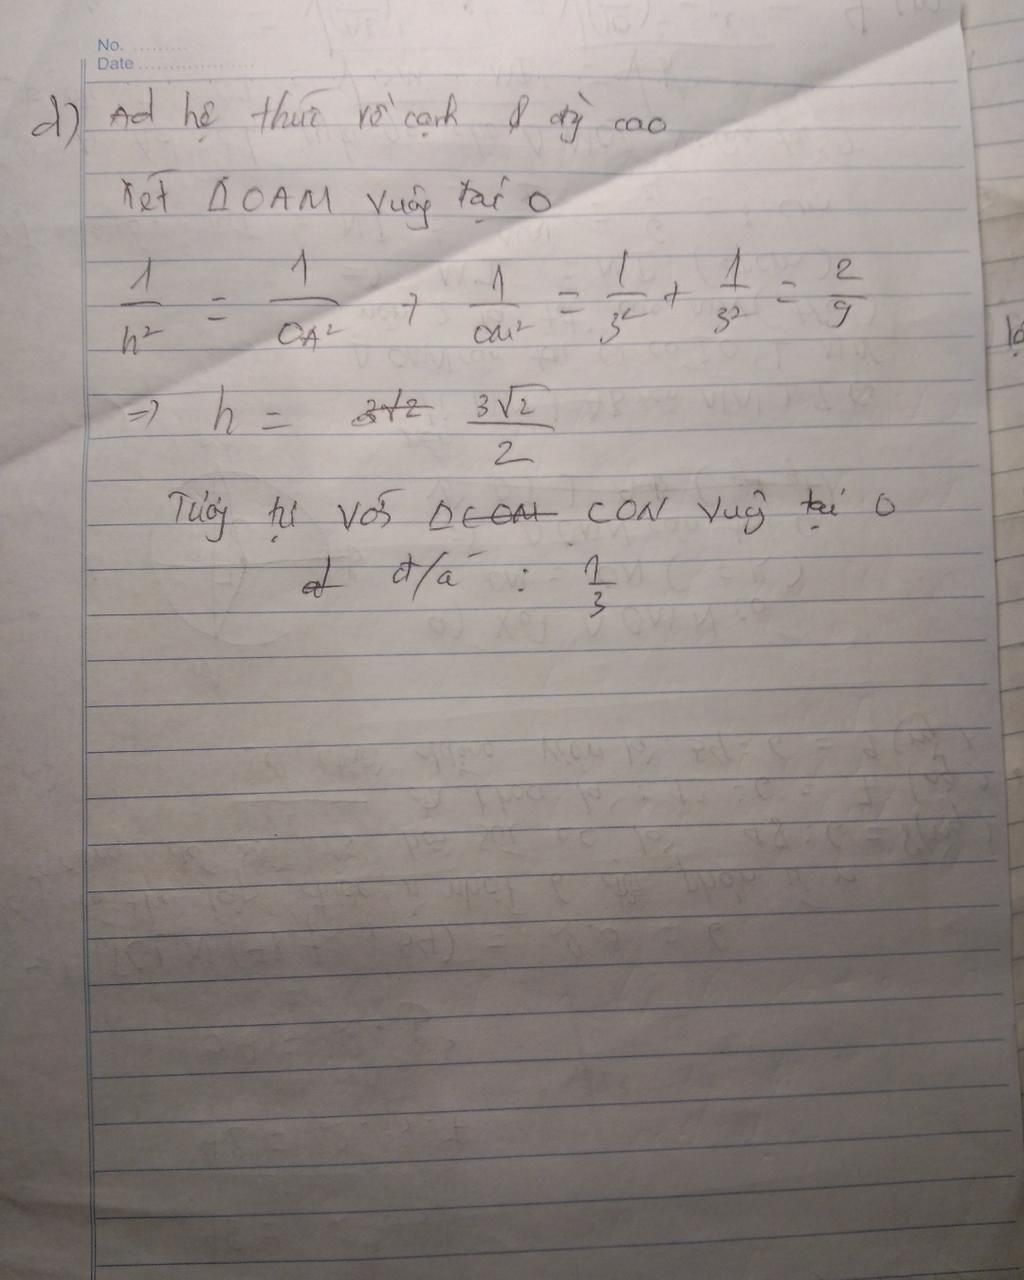 No. ..........
Date ....................
d) Ad hệ thức về cạnh & đg cao
Xét ΔOAM vuông tại O
1/h² = 1/OA² + 1/OM² = 1/3² + 1/3² = 2/9
=> h = 3√2 3√2/2
Tương tự với ΔCOM CON vuông tại O
đ/á : 1/3